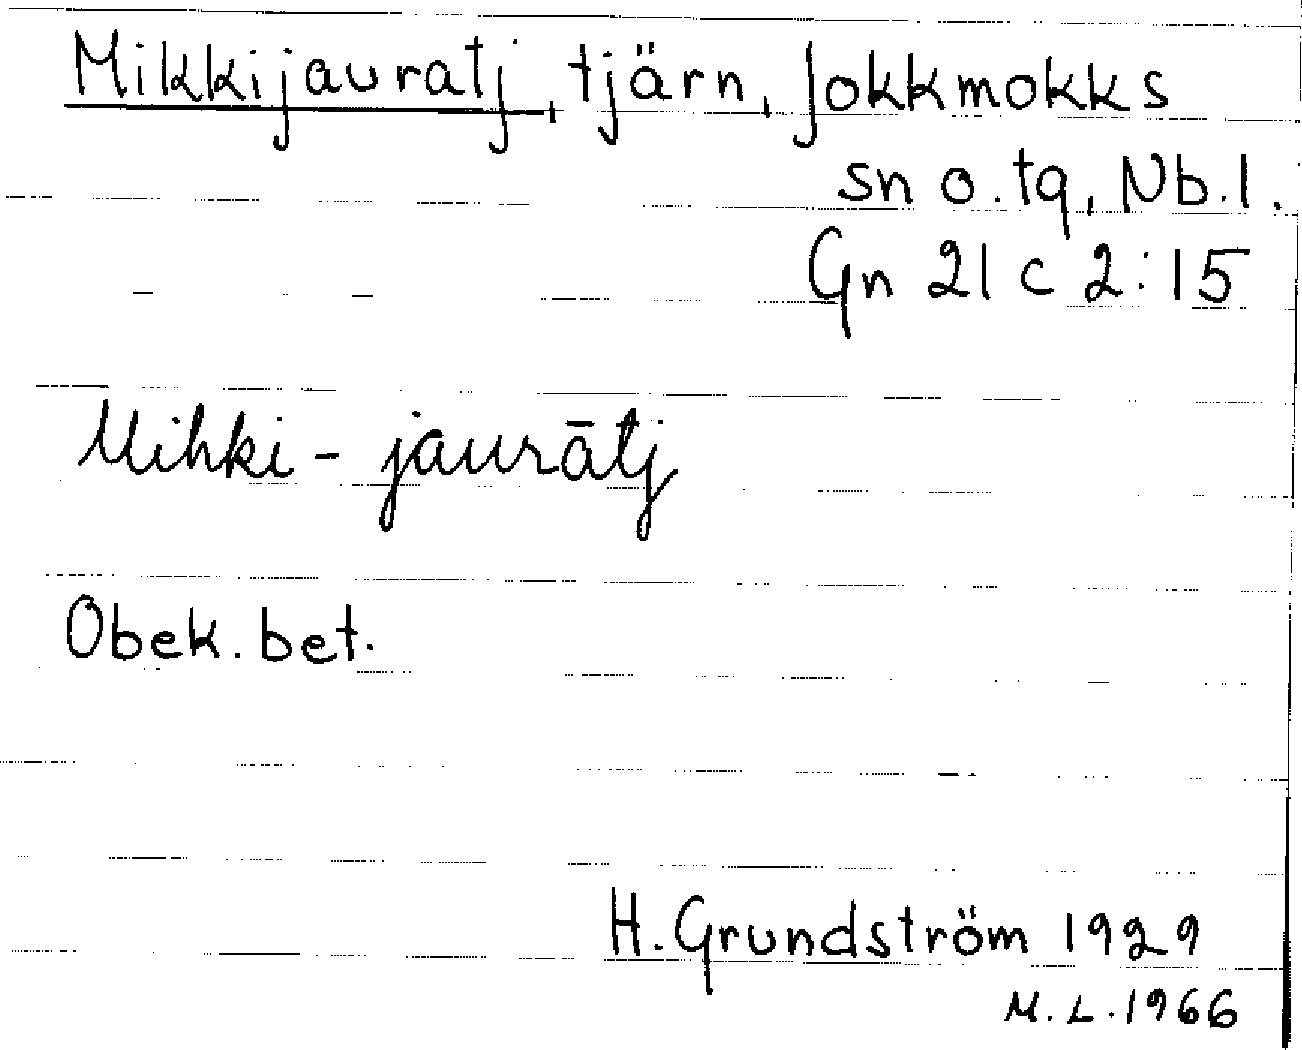 Mikkijauratj, tjärn, Jokkmokks
sn o. tg, Nb. l.
Gn 21 c 2:15
Mihki - jaurātj
Obek. bet.
H. Grundström 1929
M. L. 1966